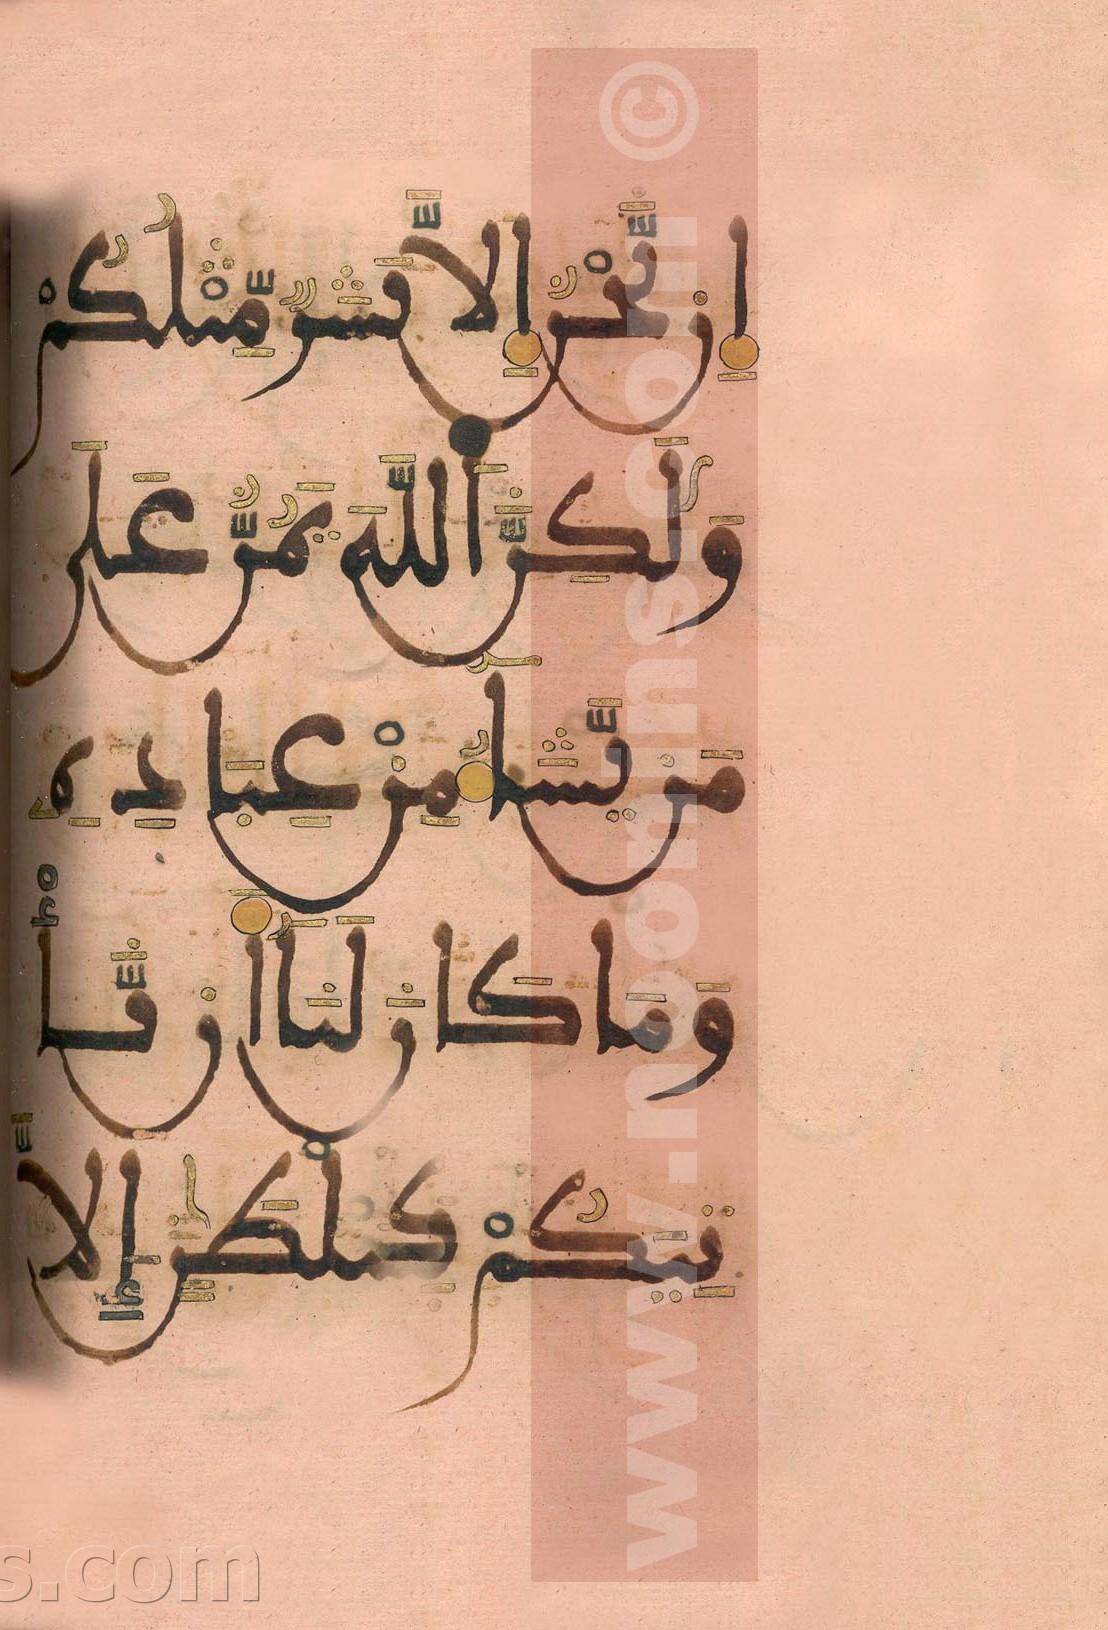 إِن نَّحْنُ إِلَّا بَشَرٌ مِّثْلُكُمْ
وَلَٰكِنَّ ٱللَّهَ يَمُنُّ عَلَىٰ
مَن يَّشَآءُ مِنْ عِبَادِهِۦ
وَمَا كَانَ لَنَآ أَن نَّا
تِيَكُم بِسُلْطَٰنٍ إِلَّا
www.noonins.com ©
s.com